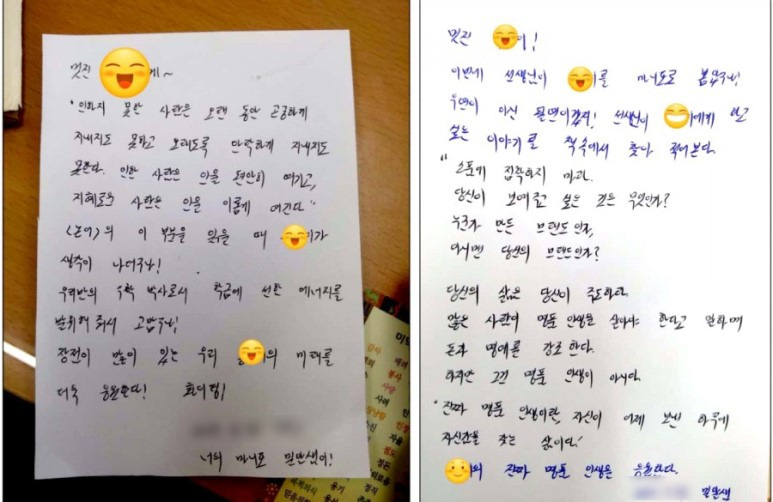 멋진 에게~
"인하지 못한 사람은 오랜 동안 곤궁하게
지내지도 못하고 오래도록 안락하게 지내지도
못한다. 인한 사람은 인을 편안히 여기고,
지혜로운 사람은 인을 이롭게 여긴다."
<논어>의 이 부분을 읽을 때 가
생각이 나더구나!
우리반의 수학 박사로서 학급에 선한 에너지를
발휘해 줘서 고맙구나!
장점이 많이 있는 우리 의 미래를
더욱 응원한다! 화이팅!
너의 마니또 밀만쌤이!
감사
배려
봉사
사랑
사려
신뢰
용기
인정
자율
정돈
친절
멋진 이!
이번에 선생님이 를 마니또로 뽑았구나!
우연이 아닌 필연이겠지! 선생님이 에게 하고
싶은 이야기를 책 속에서 찾아 적어본다.
"소문에 집착하지 마라.
당신이 보여주고 싶은 것은 무엇인가?
누군가 만든 브랜드인가,
아니면 당신의 브랜드인가?
당신의 삶은 당신이 주도하라.
많은 사람이 명품 인생을 살아야 한다고 말하며
돈과 명예를 강조한다.
하지만 그건 명품 인생이 아니다.
"진짜 명품 인생이란, 자신이 어제 보낸 하루에
자신감을 갖는 삶이다."
의 진짜 명품 인생을 응원한다.
밀만쌤